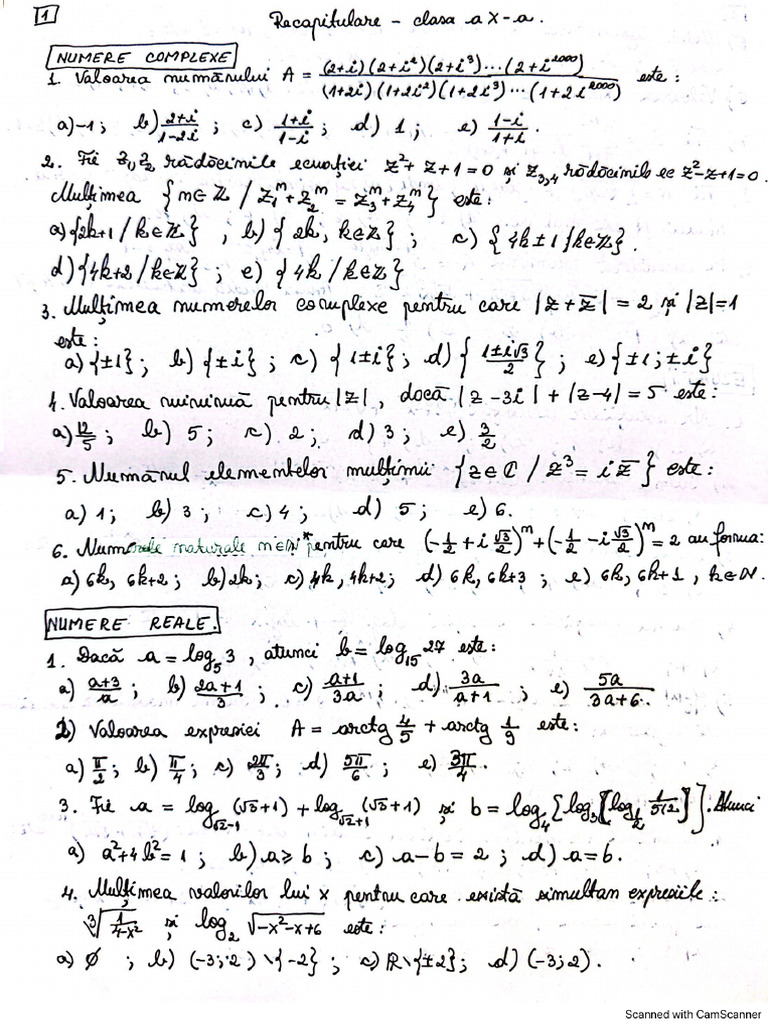 1
Recapitulare - clasa a X-a.
NUMERE COMPLEXE
1. Valoarea numărului A = \frac{(2+i)(2+i^2)(2+i^3)...(2+i^{2000})}{(1+2i)(1+2i^2)(1+2i^3)...(1+2i^{2000})} este:
a) -1; b) \frac{2+i}{1-2i}; c) \frac{1+i}{1-i}; d) 1; e) \frac{1-i}{1+i}.
2. Fie z_1, z_2 rădăcinile ecuației z^2+z+1=0 și z_{3,4} rădăcinile ec z^2-z+1=0.
Mulțimea {m∈Z / z_1^m+z_2^m = z_3^m+z_4^m} este:
a) {2k+1 / k∈Z}, b) {2k, k∈Z}; c) {4k±1 / k∈Z}.
d) {4k+2 / k∈Z}; e) {4k / k∈Z}
3. Mulțimea numerelor complexe pentru care |z+\bar{z}|=2 și |z|=1
este:
a) {±1}; b) {±i}; c) {1±i}; d) {\frac{1±i√3}{2}}; e) {±1; ±i}
4. Valoarea minimă pentru |z|, dacă |z-3i|+|z-4|=5 este:
a) \frac{12}{5}; b) 5; c) 2; d) 3; e) \frac{3}{2}
5. Numărul elementelor mulțimii {z∈C / z^3=i\bar{z}} este:
a) 1; b) 3; c) 4; d) 5; e) 6.
6. Numerele naturale m∈N* pentru care (-\frac{1}{2}+i\frac{√3}{2})^m+(-\frac{1}{2}-i\frac{√3}{2})^m=2 au forma:
a) 6k, 6k+2; b) 2k; c) 4k, 4k+2; d) 6k, 6k+3; e) 6k, 6k+1, k∈N.
NUMERE REALE.
1. Dacă a=log_5 3, atunci b=log_{15} 27 este:
a) \frac{a+3}{a}; b) \frac{2a+1}{3}; c) \frac{a+1}{3a}; d) \frac{3a}{a+1}; e) \frac{5a}{3a+6}.
2) Valoarea expresiei A = arctg \frac{4}{5} + arctg \frac{1}{9} este:
a) \frac{π}{2}; b) \frac{π}{4}; c) \frac{2π}{3}; d) \frac{5π}{6}; e) \frac{3π}{4}.
3. Fie a = log_{√2-1}(√3+1) + log_{√2+1}(√3+1) și b = log_4{log_3[log_{\frac{1}{2}} \frac{1}{512}]}. Atunci
a) a^2+4b^2=1; b) a≥b; c) a-b=2; d) a=b.
4. Mulțimea valorilor lui x pentru care există simultan expresiile:
\sqrt[3]{\frac{1}{4-x^2}} și log_2 \sqrt{-x^2-x+6} este:
a) ∅; b) (-3;2)\{-2}; c) R\{±2}; d) (-3;2).
Scanned with CamScanner